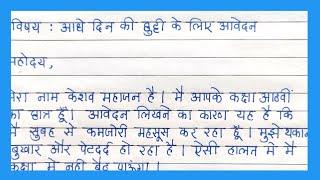 विषय : आधे दिन की छुट्टी के लिए आवेदन
महोदय,
मेरा नाम केशव महाजन है। मै आपके कक्षा आठवीं
का छात्र हूँ। आवेदन लिखने का कारण यह है कि
मै सुबह से कमजोरी महसूस कर रहा हूँ। मुझे थकान
बुखार और पेटदर्द हो रहा है। ऐसी हालत मे मै
कक्षा मे नही बैठ पाऊंगा।